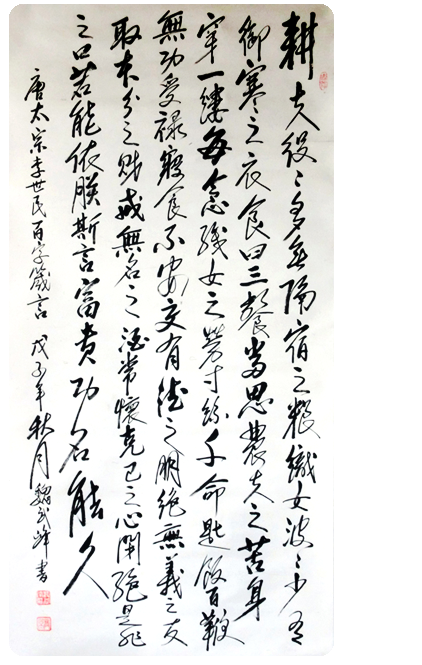 耕夫役〻多無隔宿之粮織女波〻少有
御寒之衣食日三餐當思農夫之苦身
穿一縷每念織女之勞寸絲千命匙飯百鞭
無功受禄寢食不安交有德之朋絕無義之友
取本分之財戒無名之酒常懷克己之心閉絕是非
之口若能依朕斯言富貴功名能久
唐太宗李世民百字箴言 戊子年秋月 魏武峰書